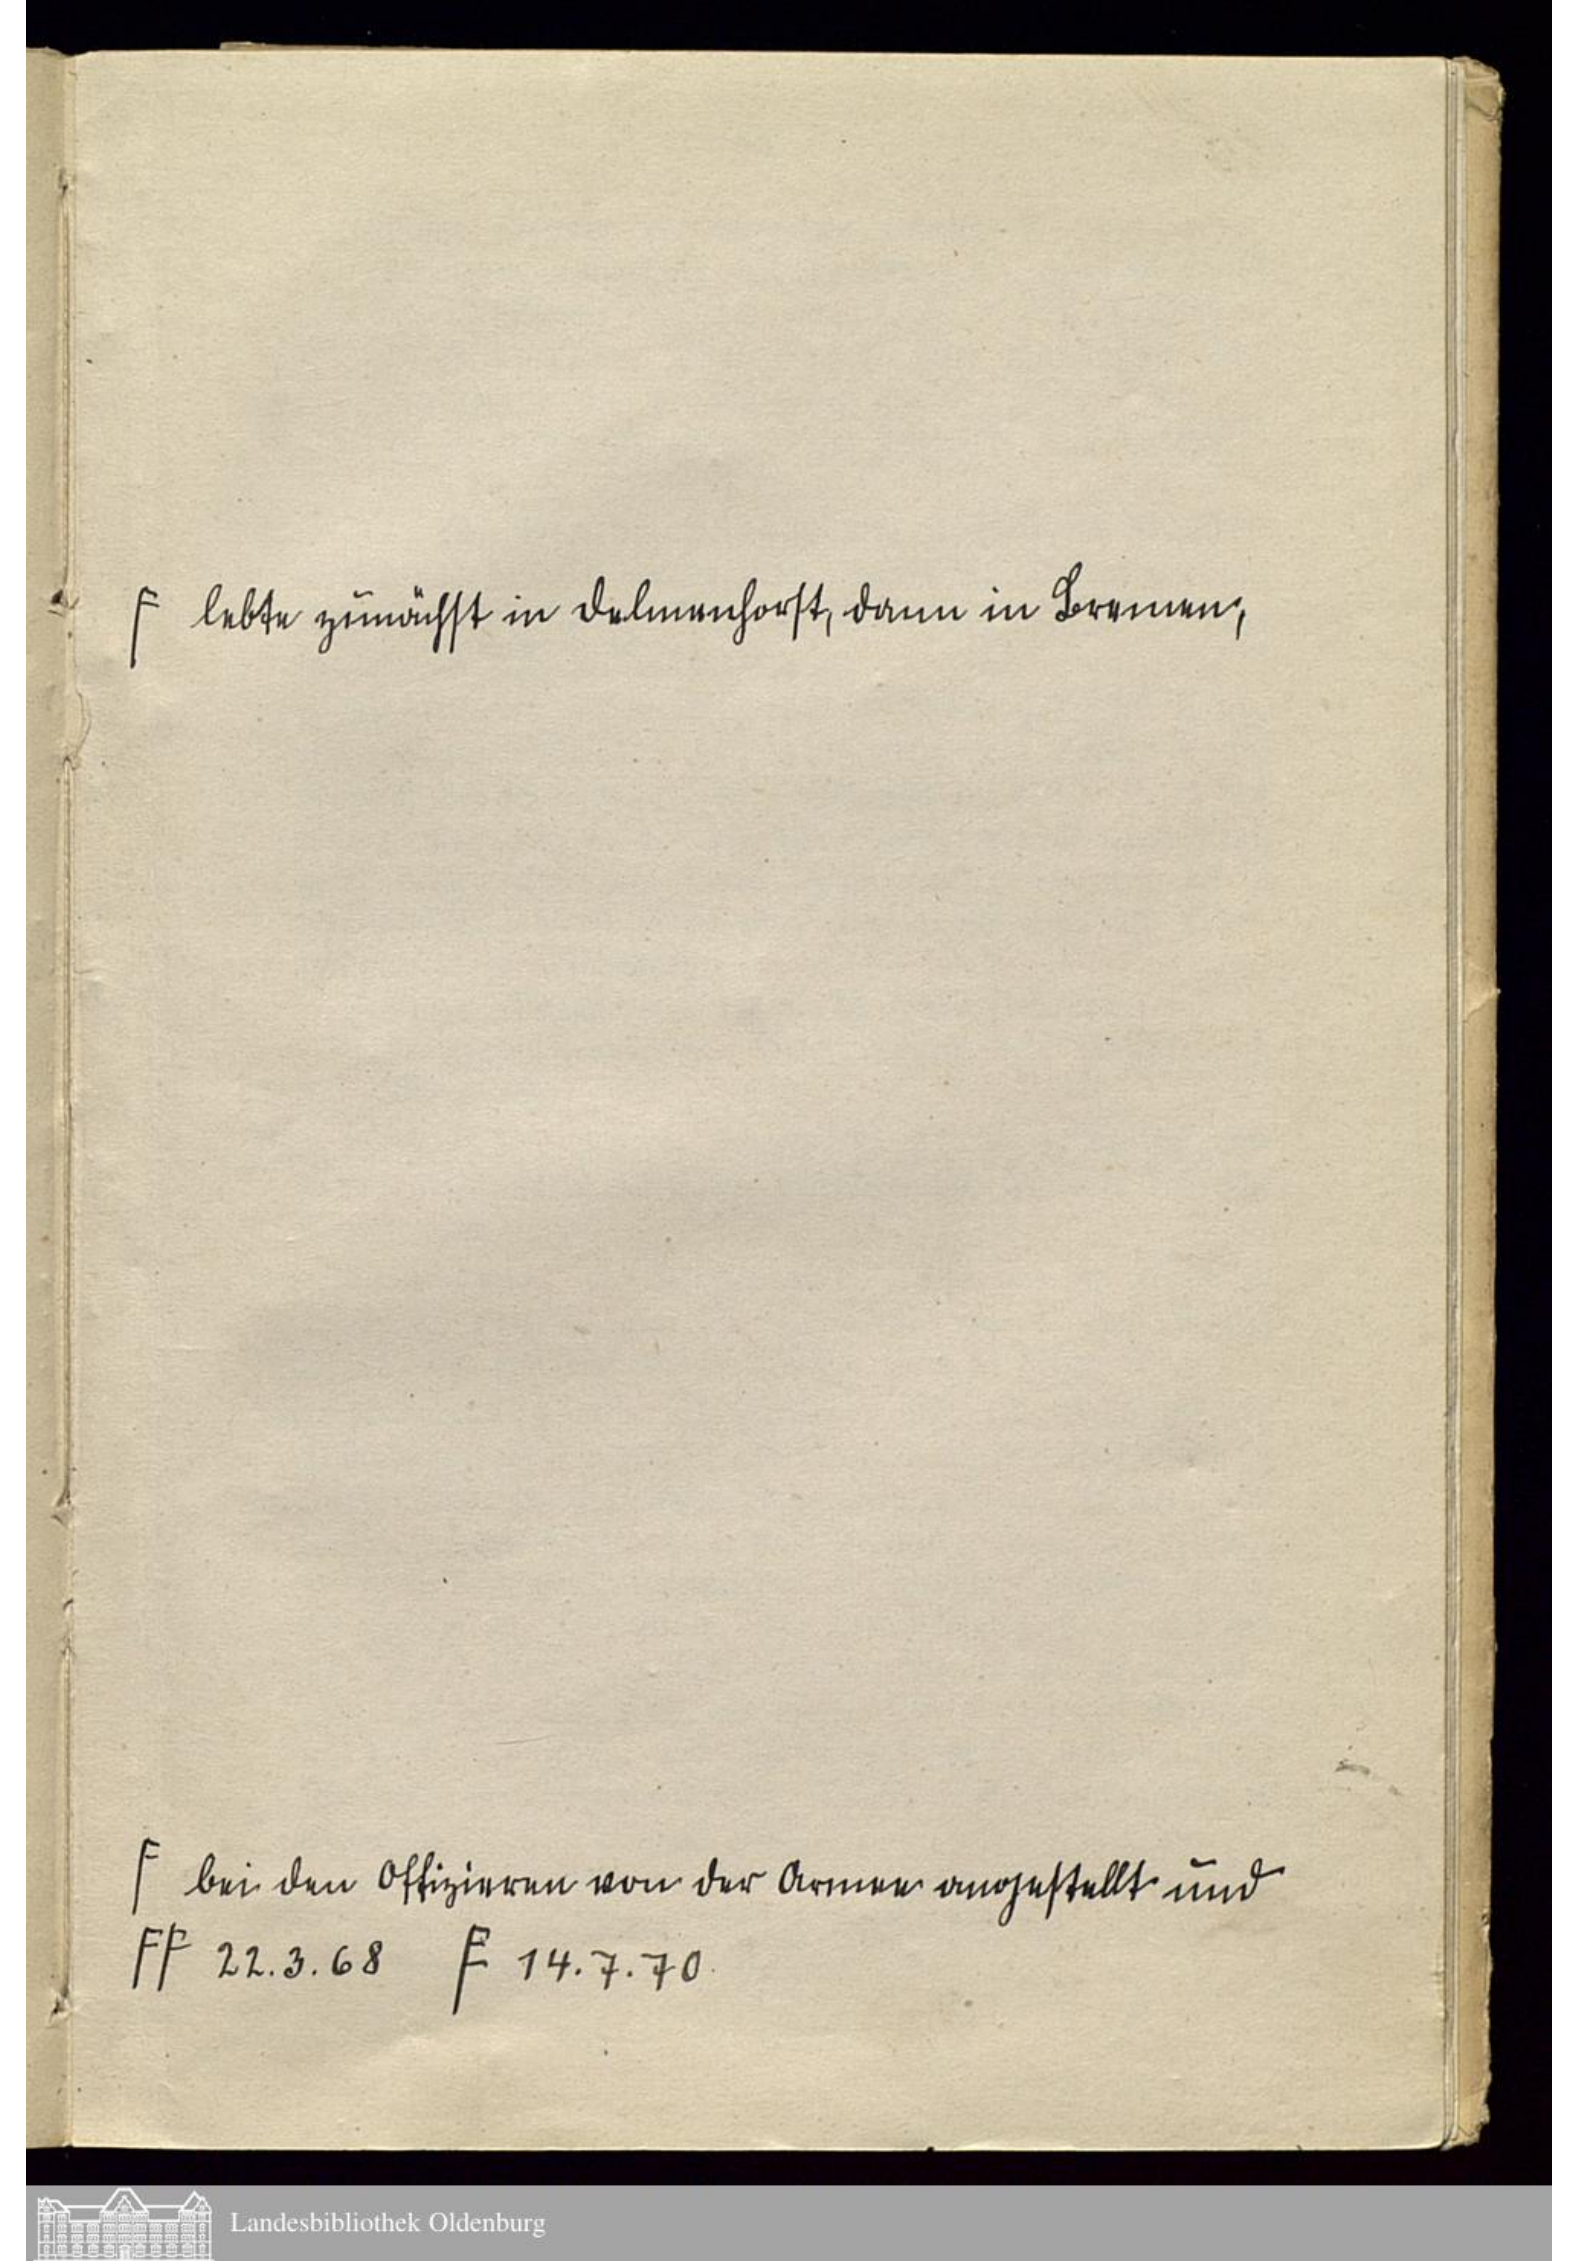 F lebte zunächst in Delmenhorst, dann in Bremen,
F bei den Offizieren von der Armee angestellt und
FF 22.3.68 F 14.7.70.
Landesbibliothek Oldenburg